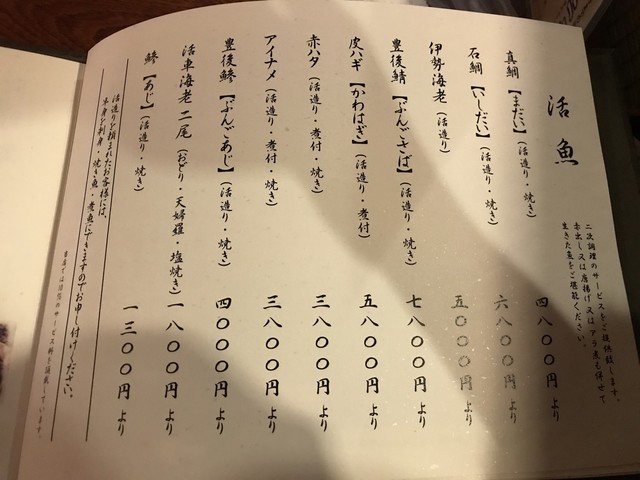 活魚
二次調理のサービスをご提供致します。
赤出し又は唐揚げ又はアラ煮も併せて
生きた魚をご堪能ください。
真鯛【まだい】(活造り・焼き) 四八〇〇円より
石鯛【いしだい】(活造り・焼き) 六八〇〇円より
伊勢海老(活造り) 五〇〇〇円より
豊後鯖【ぶんごさば】(活造り・焼き) 七八〇〇円より
皮ハギ【かわはぎ】(活造り・煮付) 五八〇〇円より
赤ハタ(活造り・煮付・焼き) 三八〇〇円より
アイナメ(活造り・煮付・焼き) 三八〇〇円より
豊後鯵【ぶんごあじ】(活造り・焼き) 四〇〇〇円より
活車海老 二尾(おどり・天婦羅・塩焼き) 一八〇〇円より
鯵【あじ】(活造り・焼き) 一三〇〇円より
活造りを頼まれたお客様には、
半身を刺身・焼き魚・煮魚にできますのでお申し付けください。
当店では別途のサービス料を頂戴しています。